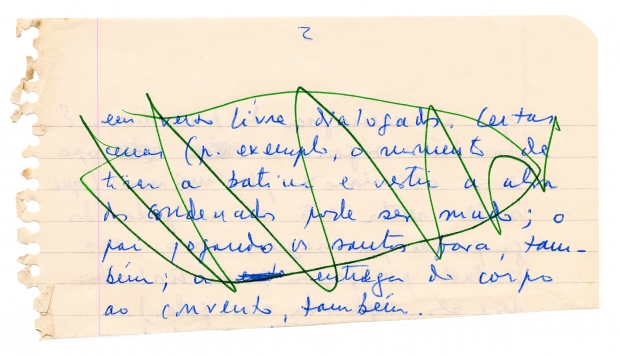 2
em verso livre, dialogado. Certas
cenas (p. exemplo, o momento de
tirar a batina e vestir a alva
do condenado pode ser mudo; o
pai jogando os santos fora, tam-
bém; a entrega do corpo
ao convento, também.